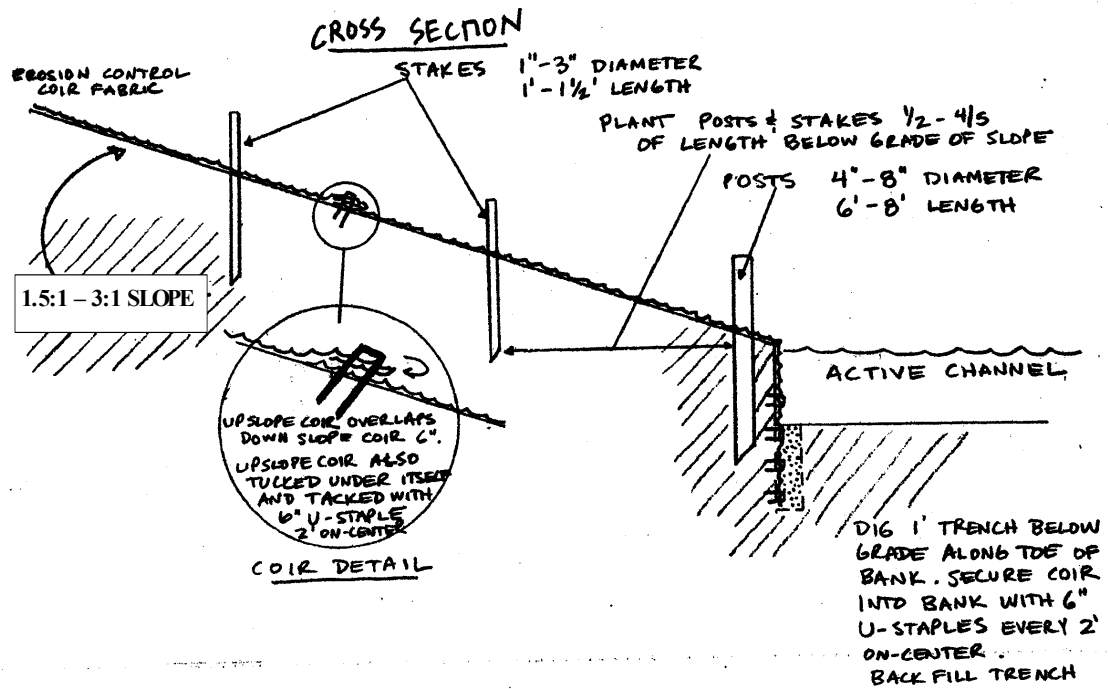 CROSS SECTION
EROSION CONTROL
COIR FABRIC
STAKES 1"-3" DIAMETER
1'-1½' LENGTH
PLANT POSTS & STAKES ½ - 4/5
OF LENGTH BELOW GRADE OF SLOPE
POSTS 4"-8" DIAMETER
6'-8' LENGTH
1.5:1 – 3:1 SLOPE
ACTIVE CHANNEL
UPSLOPE COIR OVERLAPS
DOWN SLOPE COIR 6".
UPSLOPE COIR ALSO
TUCKED UNDER ITSELF
AND TACKED WITH
6" U-STAPLE
2' ON-CENTER
COIR DETAIL
DIG 1' TRENCH BELOW
GRADE ALONG TOE OF
BANK. SECURE COIR
INTO BANK WITH 6"
U-STAPLES EVERY 2'
ON-CENTER.
BACK FILL TRENCH